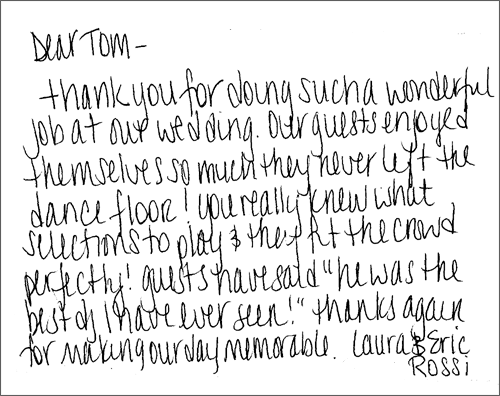 Dear Tom -
thank you for doing such a wonderful
job at our wedding. Our guests enjoyed
themselves so much they never left the
dance floor! you really knew what
selections to play & they fit the crowd
perfectly! guests have said "he was the
best dj I have ever seen!" thanks again
for making our day memorable. Laura & Eric
Rossi